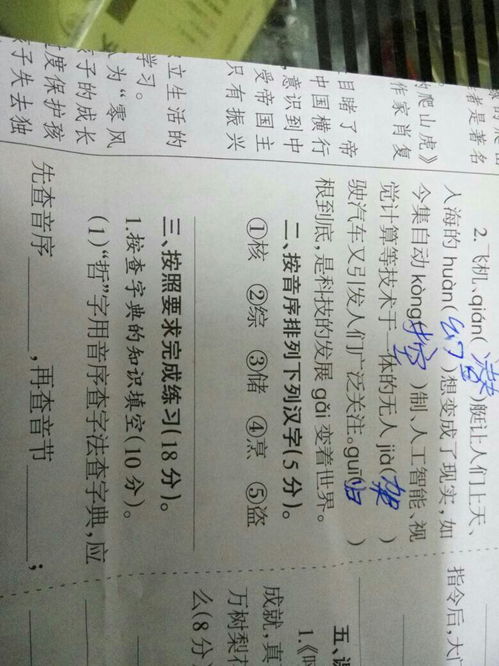 者是著名
爬山虎》
作家肖复
目睹了帝
中国横行
意识到中
受帝国主
只有振兴
立生活的
学习。
为“零风
子的成长
度保护孩
子失去独
2. 飞机、qián(潜)艇让人们上天、
入海的 huàn(幻)想变成了现实,如
今集自动 kòng(控)制、人工智能、视
觉计算等技术于一体的无人 jià(架)
驶汽车又引发人们广泛关注。guī(归)
根到底,是科技的发展 gǎi 变着世界。
二、按音序排列下列汉字(5分)。
①核 ②综 ③储 ④烹 ⑤盗
三、按照要求完成练习(18分)。
1.按查字典的知识填空(10分)。
(1)“哲”字用音序查字法查字典,应
先查音序______,再查音节______;
指令后,大
五、
成就,真
万树梨花
么(8分